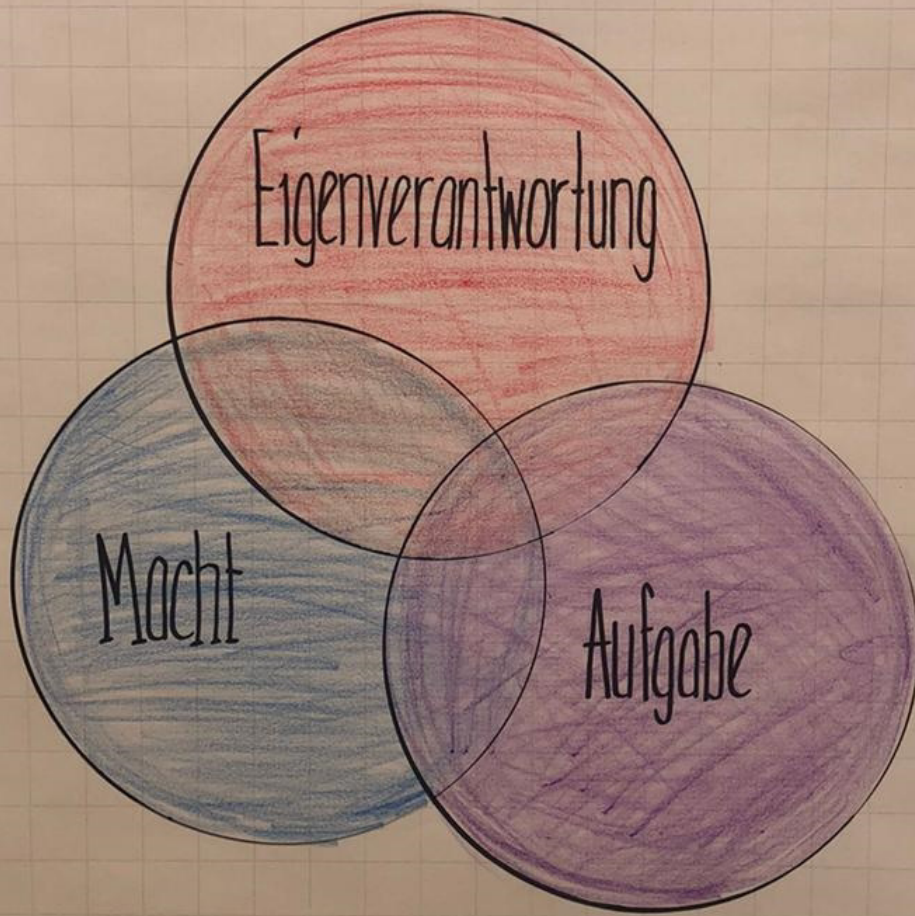 Eigenverantwortung
Macht
Aufgabe